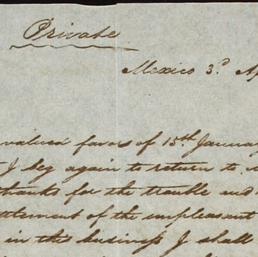 Private
Mexico 3.d Ap
valued favor of 15th January
I beg again to return to
thanks for the trouble and
ttlement of the unpleasant
in the business I shall